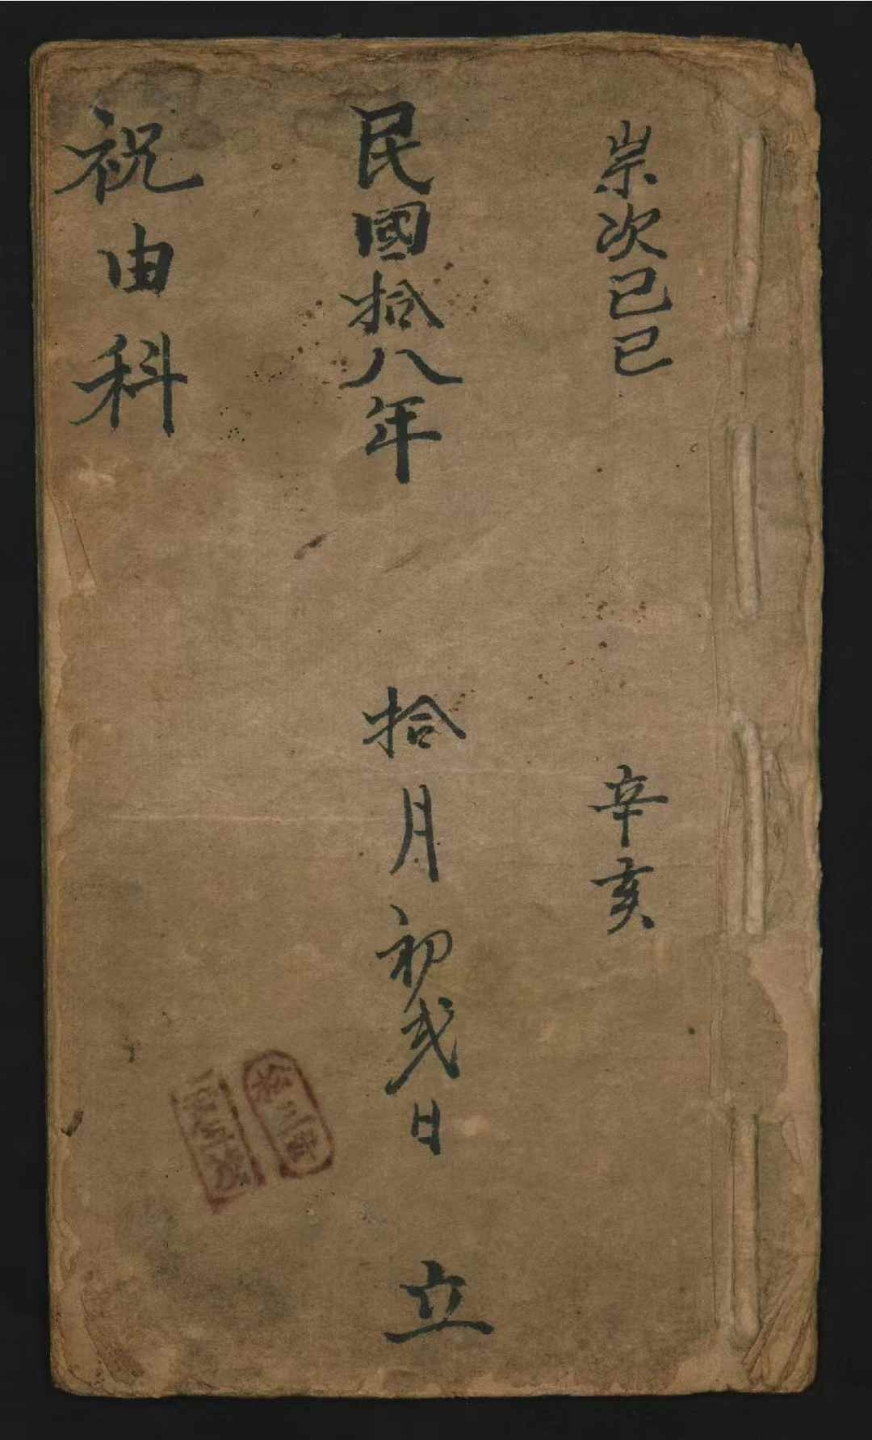 崇次己巳
辛亥
民國拾八年
拾月初弍日
立
祝由科